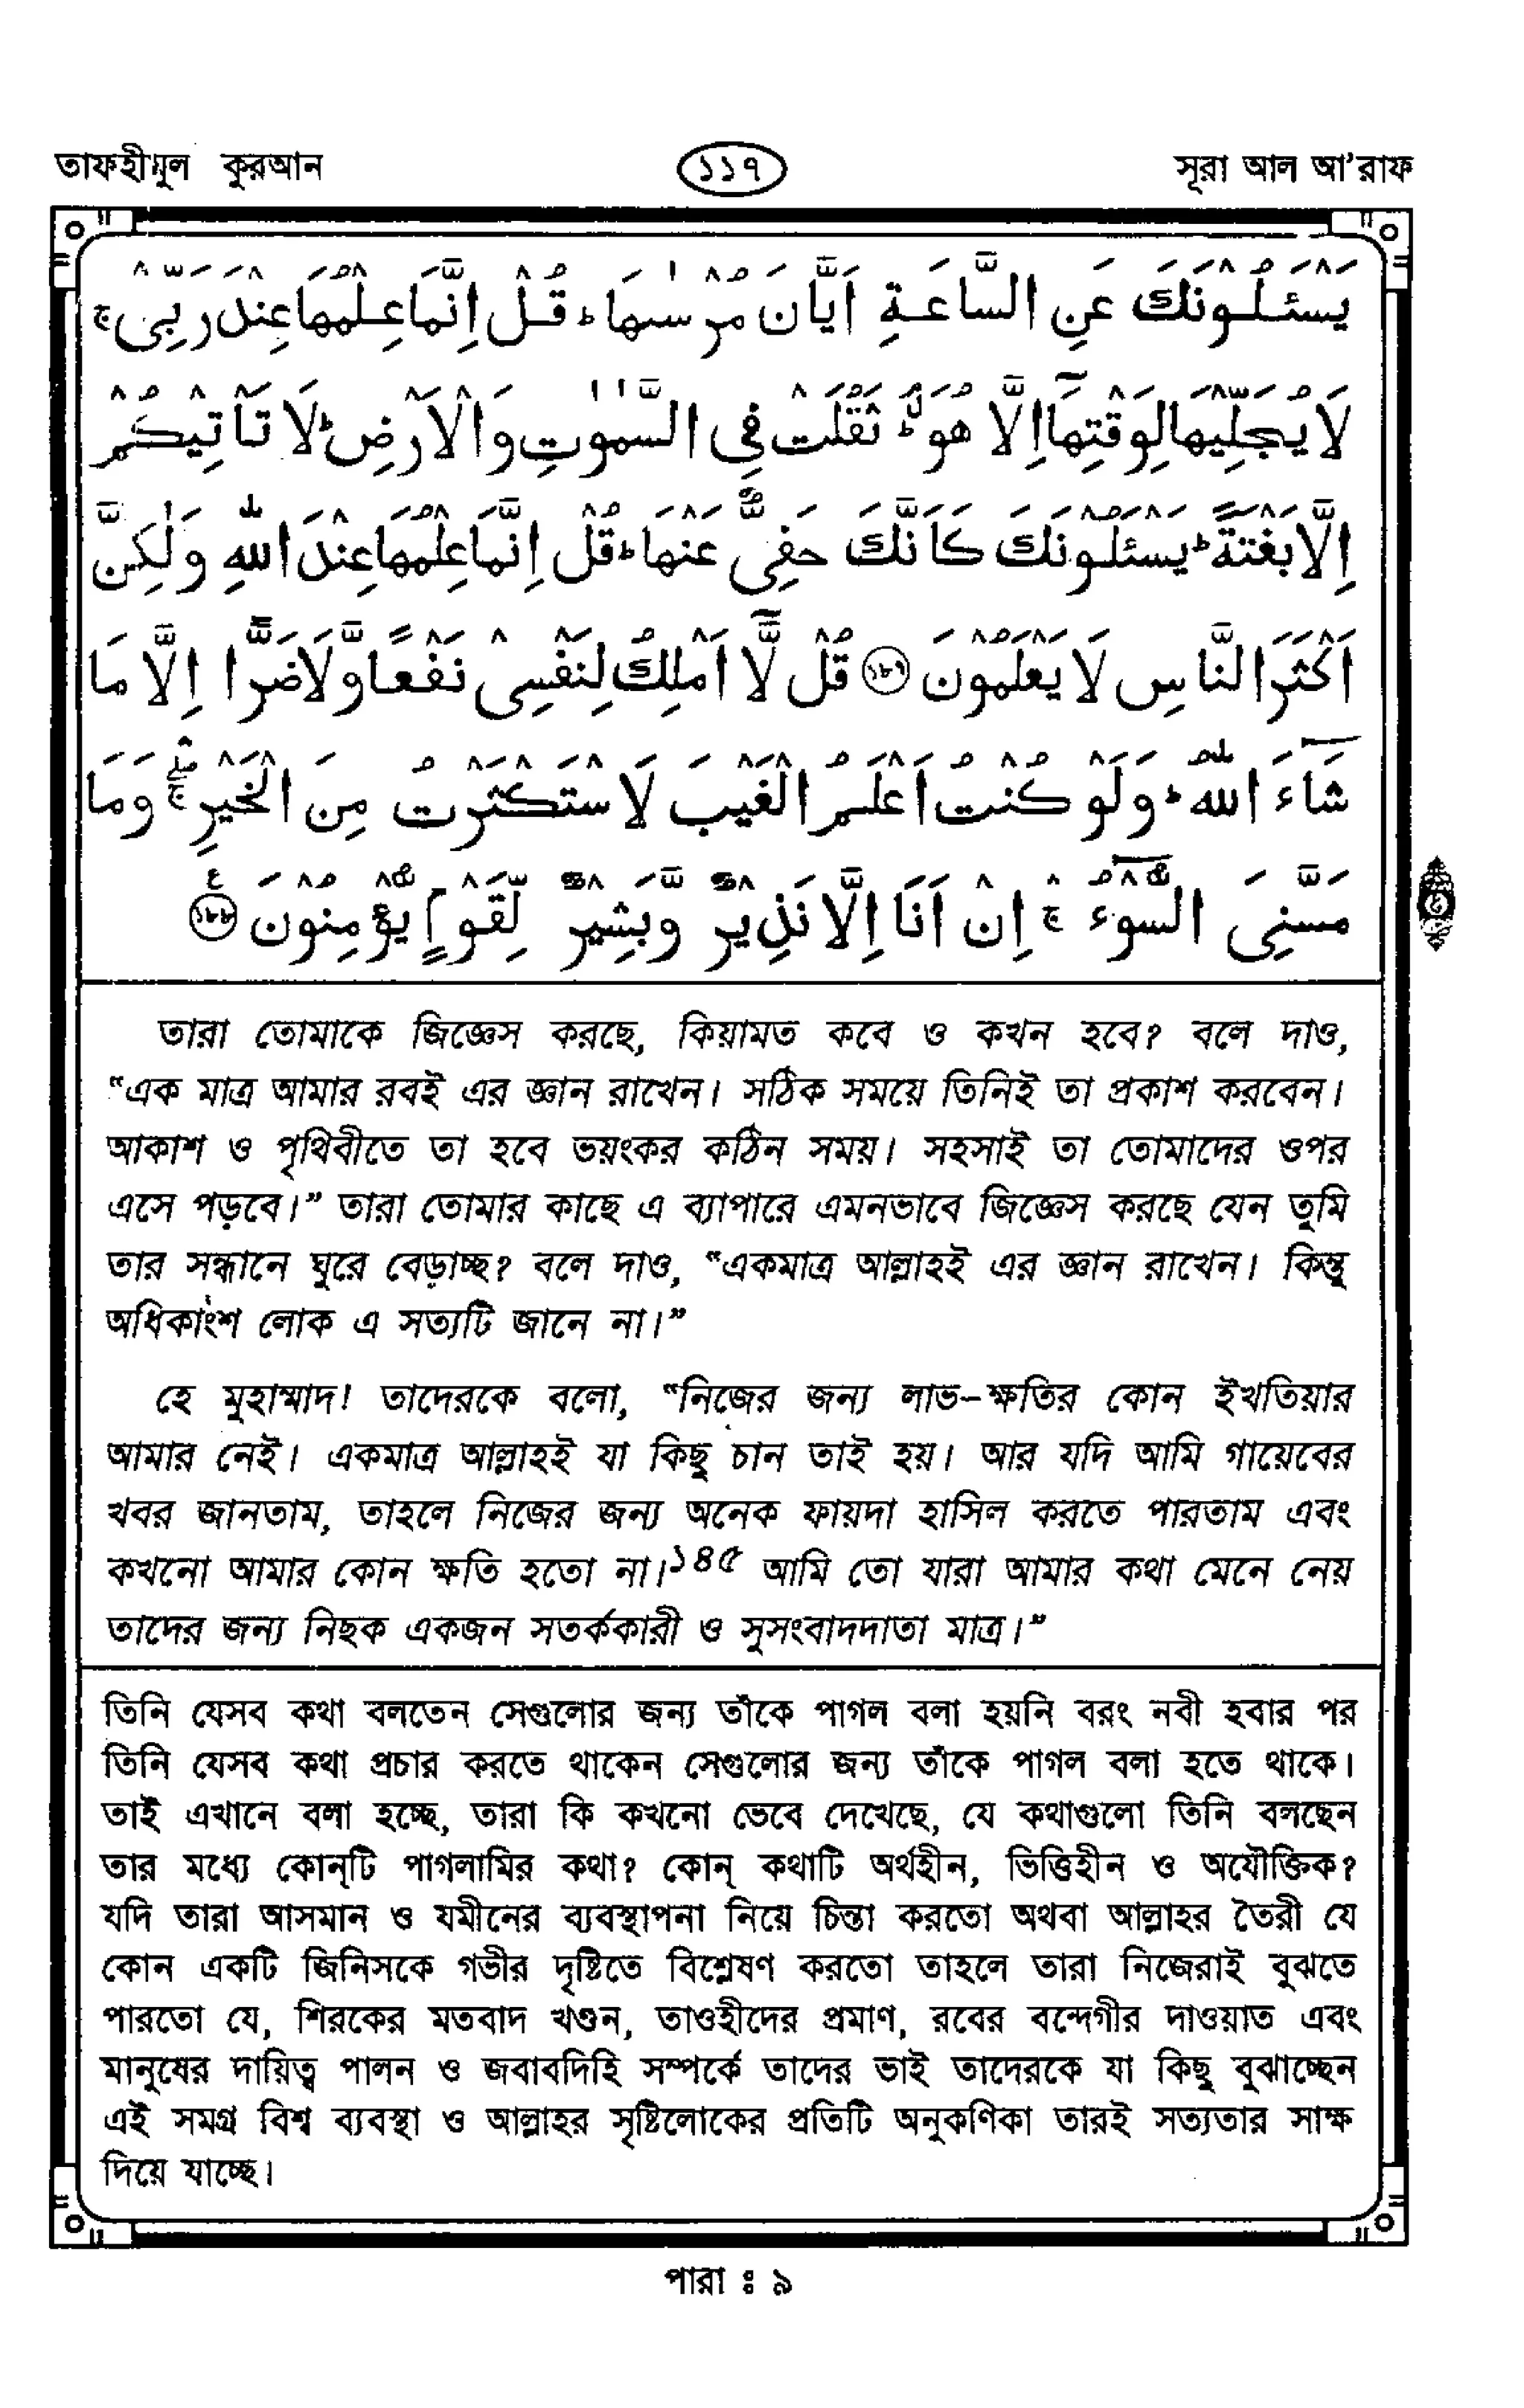 তাফহীমুল কুরআন
১১৭
সূরা আল আ'রাফ
يَسْـَٔلُوْنَكَ عَنِ السَّاعَةِ اَيَّانَ مُرْسٰىهَا ؕ قُلْ اِنَّمَا عِلْمُهَا عِنْدَ رَبِّىْ ۚ
لَا يُجَلِّيْهَا لِوَقْتِهَاۤ اِلَّا هُوَ ؕۘ ثَقُلَتْ فِى السَّمٰوٰتِ وَالْاَرْضِ ؕ لَا تَاْتِيْكُمْ
اِلَّا بَغْتَةً ؕ يَسْـَٔلُوْنَكَ كَاَنَّكَ حَفِىٌّ عَنْهَا ؕ قُلْ اِنَّمَا عِلْمُهَا عِنْدَ اللّٰهِ وَلٰكِنَّ
اَكْثَرَ النَّاسِ لَا يَعْلَمُوْنَ ﴿١٨٧﴾ قُلْ لَّاۤ اَمْلِكُ لِنَفْسِىْ نَفْعًا وَّلَا ضَرًّا اِلَّا مَا
شَآءَ اللّٰهُ ؕ وَلَوْ كُنْتُ اَعْلَمُ الْغَيْبَ لَاسْتَكْثَرْتُ مِنَ الْخَيْرِ ۚۛ وَمَا
مَسَّنِىَ السُّوْٓءُ ۚ اِنْ اَنَا اِلَّا نَذِيْرٌ وَّبَشِيْرٌ لِّقَوْمٍ يُّؤْمِنُوْنَ ﴿١٨٨﴾
তারা তোমাকে জিজ্ঞেস করছে, কিয়ামত কবে ও কখন হবে? বলে দাও,
"এক মাত্র আমার রবই এর জ্ঞান রাখেন। সঠিক সময়ে তিনিই তা প্রকাশ করবেন।
আকাশ ও পৃথিবীতে তা হবে ভয়ংকর কঠিন সময়। সহসাই তা তোমাদের ওপর
এসে পড়বে।" তারা তোমার কাছে এ ব্যাপারে এমনভাবে জিজ্ঞেস করছে যেন তুমি
তার সন্ধানে ঘুরে বেড়াচ্ছ? বলে দাও, "একমাত্র আল্লাহই এর জ্ঞান রাখেন। কিন্তু
অধিকাংশ লোক এ সত্যটি জানে না।"
হে মুহাম্মাদ! তাদেরকে বলো, "নিজের জন্য লাভ-ক্ষতির কোন ইখতিয়ার
আমার নেই। একমাত্র আল্লাহই যা কিছু চান তাই হয়। আর যদি আমি গায়েবের
খবর জানতাম, তাহলে নিজের জন্য অনেক ফায়দা হাসিল করতে পারতাম এবং
কখনো আমার কোন ক্ষতি হতো না।১৪৫ আমি তো যারা আমার কথা মেনে নেয়
তাদের জন্য নিছক একজন সতর্ককারী ও সুসংবাদদাতা মাত্র।"
তিনি যেসব কথা বলতেন সেগুলোর জন্য তাঁকে পাগল বলা হয়নি বরং নবী হবার পর
তিনি যেসব কথা প্রচার করতে থাকেন সেগুলোর জন্য তাঁকে পাগল বলা হতে থাকে।
তাই এখানে বলা হচ্ছে, তারা কি কখনো ভেবে দেখেছে, যে কথাগুলো তিনি বলছেন
তার মধ্যে কোন্‌টি পাগলামির কথা? কোন্ কথাটি অর্থহীন, ভিত্তিহীন ও অযৌক্তিক?
যদি তারা আসমান ও যমীনের ব্যবস্থাপনা নিয়ে চিন্তা করতো অথবা আল্লাহর তৈরী যে
কোন একটি জিনিসকে গভীর দৃষ্টিতে বিশ্লেষণ করতো তাহলে তারা নিজেরাই বুঝতে
পারতো যে, শিরকের মতবাদ খণ্ডন, তাওহীদের প্রমাণ, রবের বন্দেগীর দাওয়াত এবং
মানুষের দায়িত্ব পালন ও জবাবদিহি সম্পর্কে তাদের ভাই তাদেরকে যা কিছু বুঝাচ্ছেন
এই সমগ্র বিশ্ব ব্যবস্থা ও আল্লাহর সৃষ্টিলোকের প্রতিটি অনুকণিকা তারই সত্যতার সাক্ষ
দিয়ে যাচ্ছে।
পারা ঃ ৯